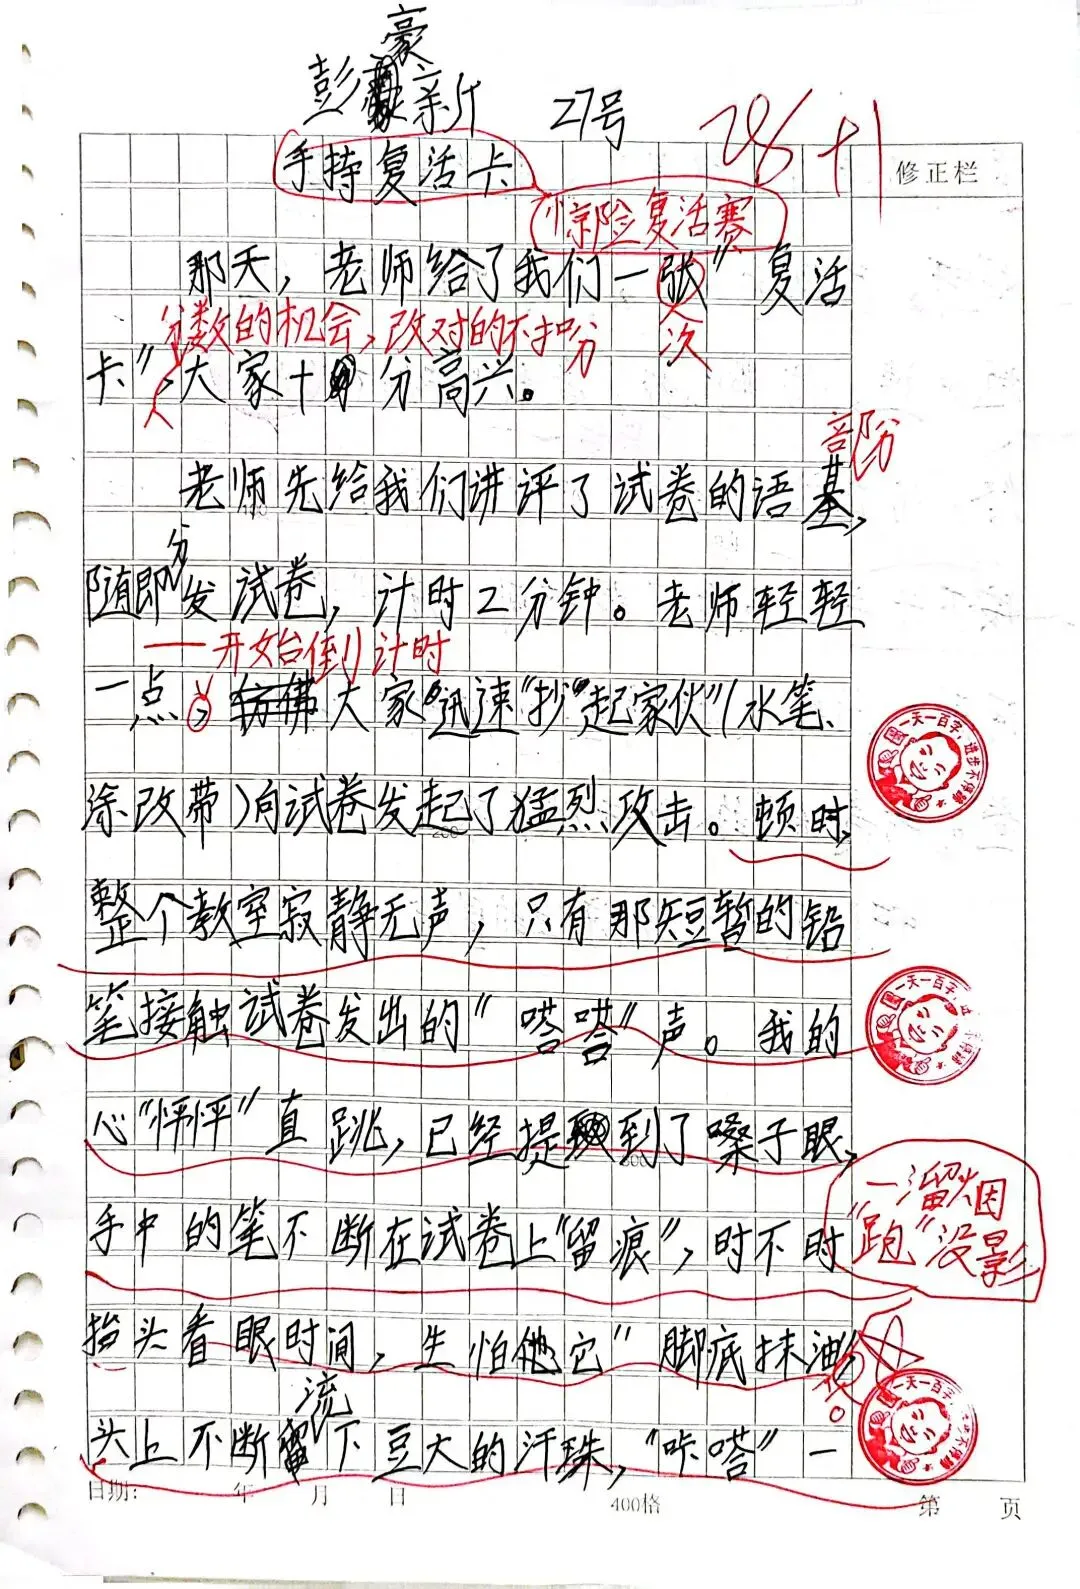 豪
彭亲斤 27号
28 +1
手持复活卡
修正栏
惊险复活赛
那天，老师给了我们一张“复活
分数的机会，改对的不扣分 次
卡”，大家十分高兴。
部分
老师先给我们讲评了试卷的语基，
分
随即发试卷，计时2分钟。老师轻轻
一开始倒计时
一点，仿佛大家迅速“抄”起家伙”（水笔、
涂改带）向试卷发起了猛烈攻击。顿时，
整个教室寂静无声，只有那短暂的铅
笔接触试卷发出的“嗒嗒”声。我的
心“怦怦”直跳，已经提到了嗓子眼，
一溜烟
手中的笔不断在试卷上“留痕”，时不时
“跑”没影
抬头看眼时间，生怕他它“脚底抹油”
流
头上不断留下豆大的汗珠，“咔嗒”一
日期： 年 月 日 400格 第 页
一天一百字，进步不得了
一天一百字，
一天一百字